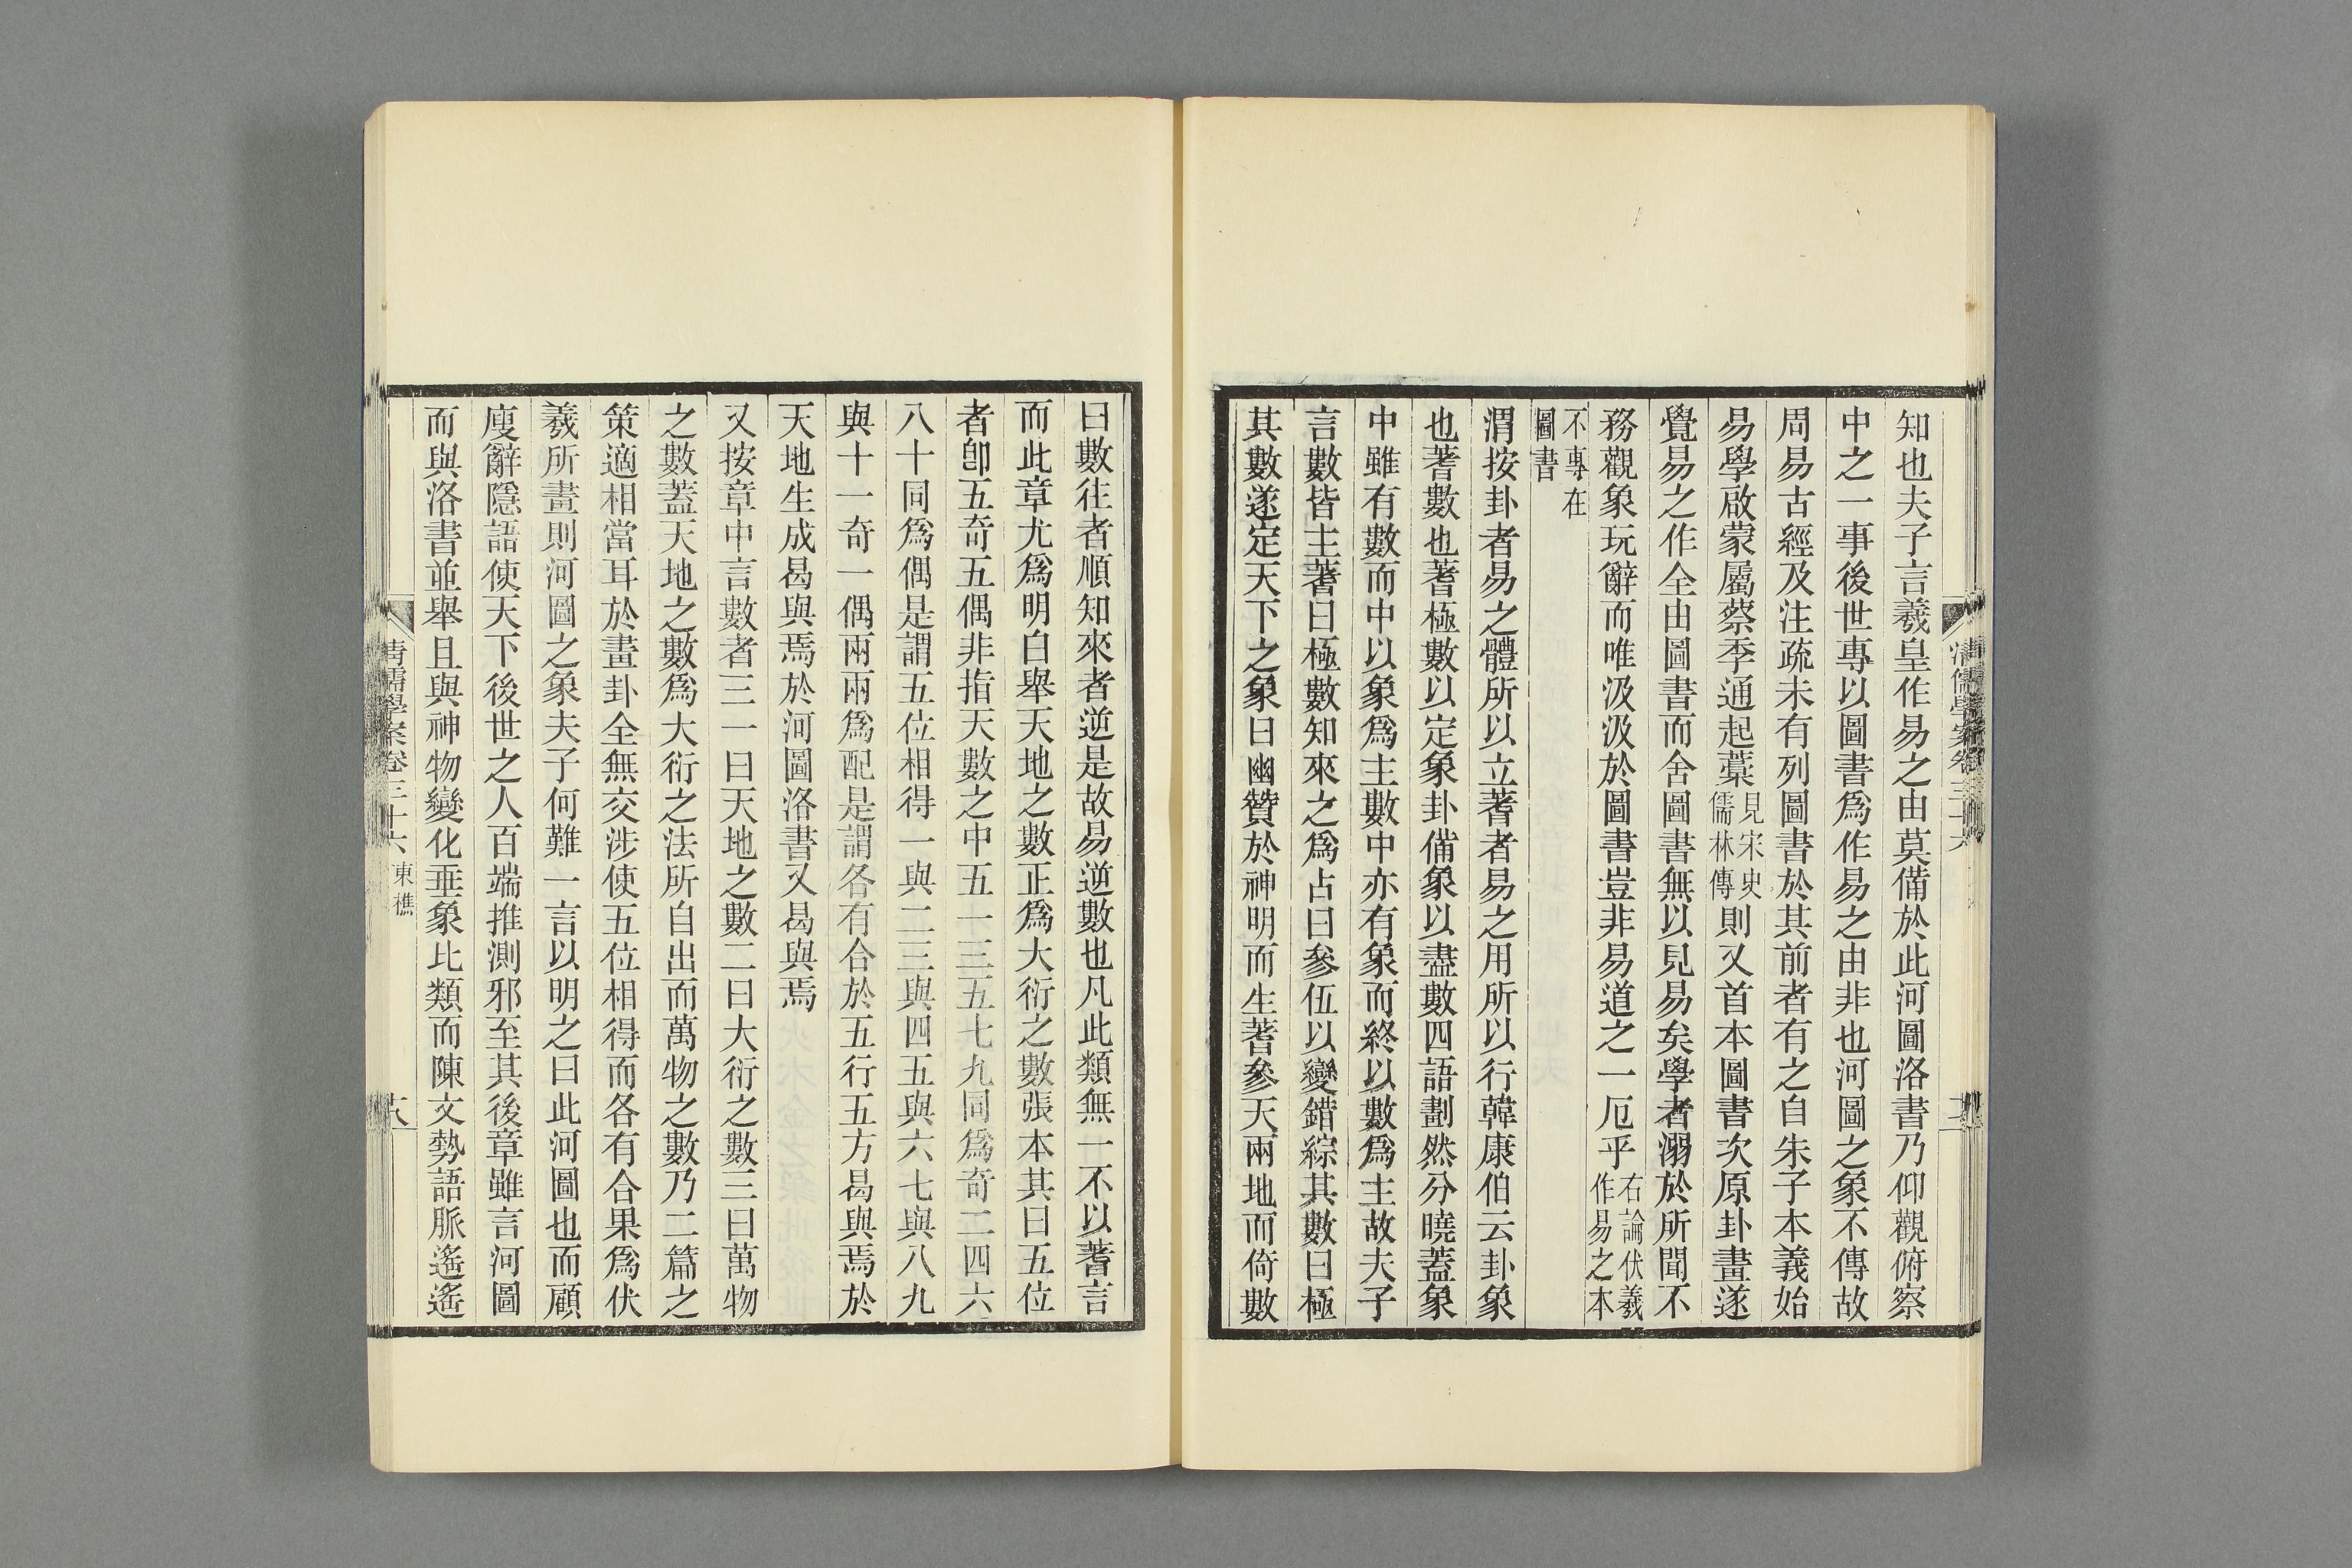 知也夫子言羲皇作易之由莫備於此河圖洛書乃仰觀俯察
中之一事後世專以圖書爲作易之由非也河圖之象不傳故
周易古經及注疏未有列圖書於其前者有之自朱子本義始
易學啟蒙屬蔡季通起藁見宋史儒林傳則又首本圖書次原卦畫遂
覺易之作全由圖書而舍圖書無以見易矣學者溺於所聞不
務觀象玩辭而唯汲汲於圖書豈非易道之一厄乎右論伏羲作易之本
不專在圖書
渭按卦者易之體所以立蓍者易之用所以行韓康伯云卦象
也蓍數也蓍極數以定象卦備象以盡數四語劃然分曉蓋象
中雖有數而中以象爲主數中亦有象而終以數爲主故夫子
言數皆主蓍曰極數知來之爲占曰參伍以變錯綜其數曰極
其數遂定天下之象曰幽贊於神明而生蓍參天兩地而倚數
曰數往者順知來者逆是故易逆數也凡此類無一不以蓍言
而此章尤爲明白舉天地之數正爲大衍之數張本其曰五位
者卽五奇五偶非指天數之中五一三五七九同爲奇二四六
八十同爲偶是謂五位相得一與二三與四五與六七與八九
與十一奇一偶兩兩爲配是謂各有合於五行五方曷與焉於
天地生成曷與焉於河圖洛書又曷與焉
又按章中言數者三一曰天地之數二曰大衍之數三曰萬物
之數蓋天地之數爲大衍之法所自出而萬物之數乃二篇之
策適相當耳於畫卦全無交涉使五位相得而各有合果爲伏
羲所畫則河圖之象夫子何難一言以明之曰此河圖也而顧
廋辭隱語使天下後世之人百端推測邪至其後章雖言河圖
而與洛書並舉且與神物變化垂象比類而陳文勢語脈遙遙
清儒學案卷三十六 東樵
十八